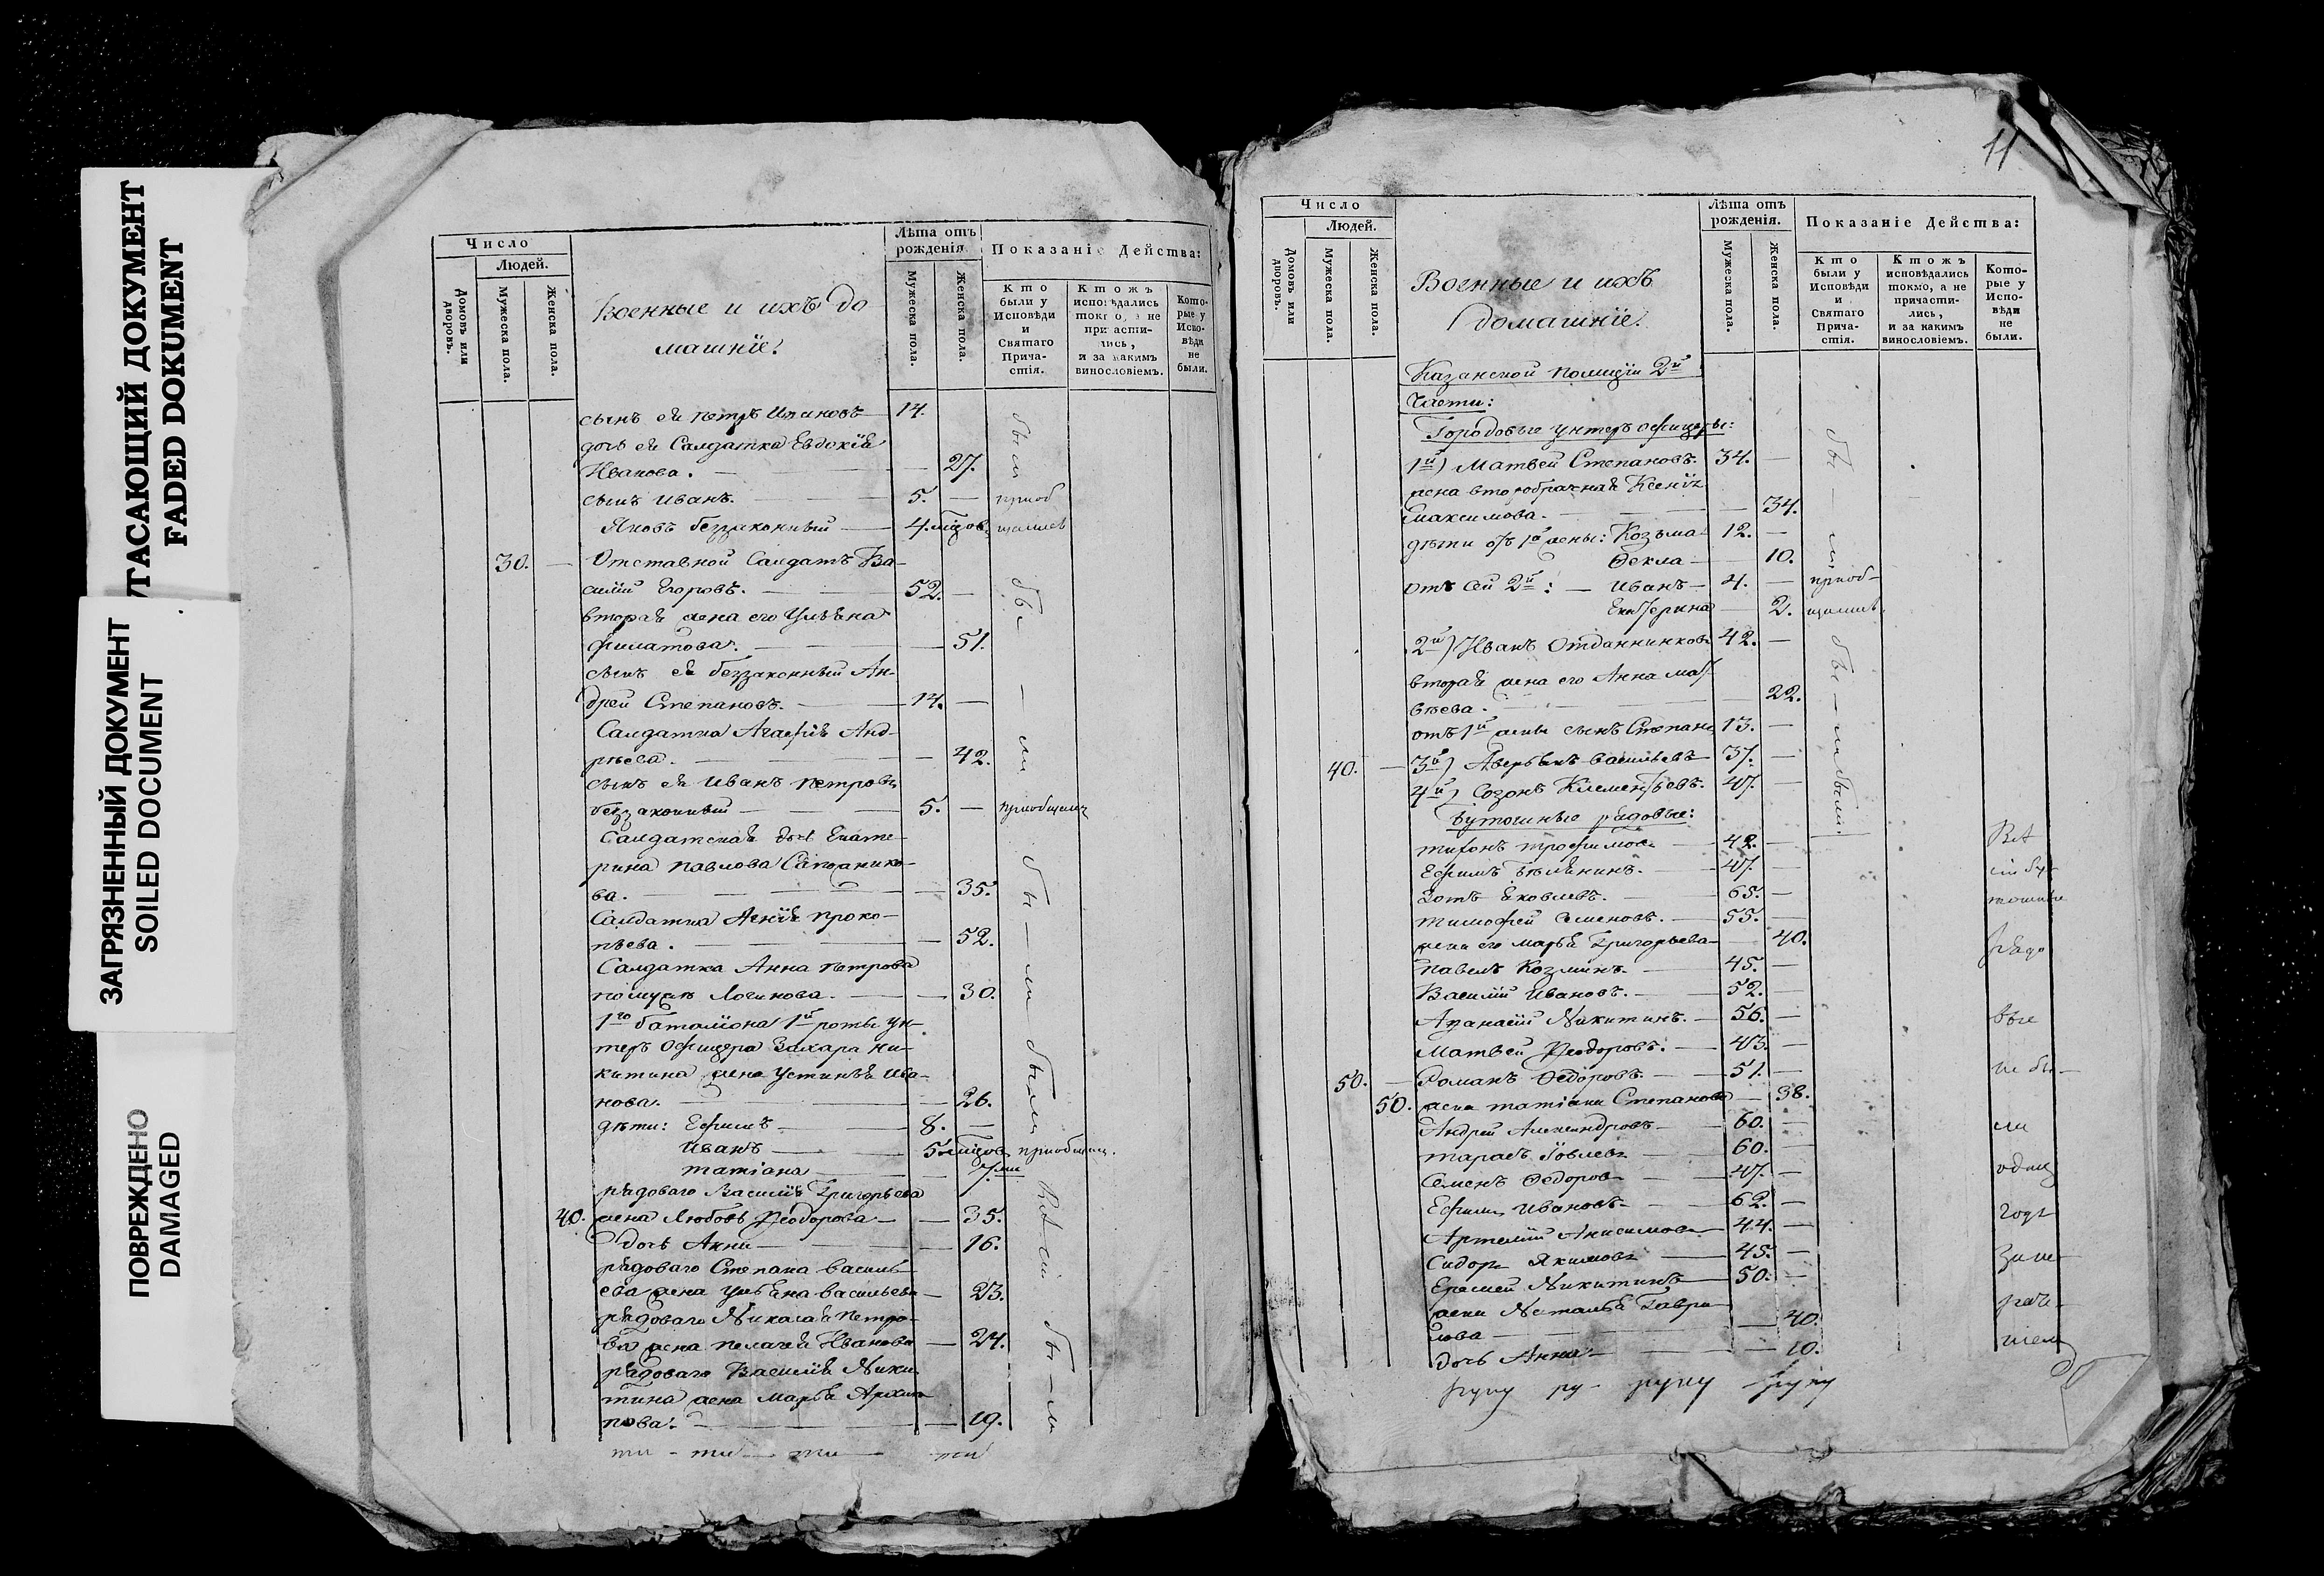 УГАСАЮЩИЙ ДОКУМЕНТ
FADED DOKUMENT
ЗАГРЯЗНЕННЫЙ ДОКУМЕНТ
SOILED DOCUMENT
ПОВРЕЖДЕНО
DAMAGED
Число
Людей.
Домовъ или дворовъ.
Мужеска пола.
Женска пола.
Военные и ихъ до
машніе:
Лѣта отъ рожденія.
Мужеска пола.
Женска пола.
Показаніе Действа:
Кто были у Исповѣди и Святаго Причастія.
Ктожъ исповѣдались токмо, а не причастились, и за какимъ винословіемъ.
Которые у Исповѣди не были.
сынъ ея Петръ Ивановъ 14.
дочь ея Салдатка Евдокія
Иванова. 27.
сынъ Иванъ. 5. приоб
Яковъ беззаконный 4. мѣсяцов щались
30. Отставной Салдатъ Ва-
силій Егоровъ. 52.
вторая жена его Ульяна
Филатова. 51.
сынъ ея беззаконный Ан-
дрей Степановъ. 14.
Салдатка Агафія Анд-
рѣева. 42.
сынъ ея Иванъ Петровъ
беззаконный 5. приобщенъ
Салдатская дочь Екате-
рина Павлова Сапожнико-
ва. 35.
Салдатка Ксенія Проко-
пьева. 52.
Салдатка Анна Петрова
по мужѣ Логинова. 30.
1го баталіона 1й роты ун-
теръ Офицера Захара Ни-
китина жена Устинья Ива-
нова. 26.
дѣти: Ефимъ 8.
Иванъ 5 приобщен.
Татіана
рядоваго Василія Григорьева
40. жена Любовь Феодорова 35.
дочь Анна 16.
рядоваго Степана Василь-
ева жена Ульяна Васильева 23.
рядоваго Николая Петро-
ва жена Пелагея Иванова 24.
рядоваго Василія Ники-
тина жена Марья Архи-
пова. 19.
ти - ти - ти - ти
11
Число
Людей.
Домовъ или дворовъ.
Мужеска пола.
Женска пола.
Военные и ихъ
домашніе:
Лѣта отъ рожденія.
Мужеска пола.
Женска пола.
Показаніе Действа:
Кто были у Исповѣди и Святаго Причастія.
Ктожъ исповѣдались токмо, а не причастились, и за какимъ винословіемъ.
Которые у Исповѣди не были.
Казанской Полиціи 2й
Части:
Городовые унтеръ офицеры:
1й) Матвей Степановъ. 34.
жена второбрачная Ксенія
Максимова. 34.
дѣти отъ 1й жены: Козьма 12.
Фекла 10.
отъ сей 2й: Иванъ 4. приоб-
Екатерина 2. щались.
2й) Иванъ Отданниковъ 42.
вторая жена его Анна Мат-
вѣева. 22.
отъ 1й жены сынъ Степанъ 13.
40. 3й) Аверьянъ Васильевъ 37.
4й) Созонъ Климентьевъ. 47.
Бутошные рядовые:
Тихонъ Трофимовъ 42. Всѣ
Ефимъ Белянинъ. 47. сіи бу-
Зотъ Яковлевъ. 65. тошные
Тимофей Семеновъ. 55.
жена его Марья Григорьева 40. рядо
Павелъ Козминъ. 45.
Василій Ивановъ. 52.
Афанасій Никитинъ. 56. вые
Матвей Феодоровъ. 43.
50. Романъ Федоровъ. 51. не бы-
50. жена Татіана Степанова 38.
Андрей Александровъ 60. ли
Тарасъ Іовлевъ 60.
Семенъ Федоровъ 47. одинъ
Ефимъ Ивановъ. 62. годъ
Артемій Анисимовъ 44.
Сидоръ Якимовъ 45. за не-
Еремей Никитинъ 50.
жена Наталья Гаври- раче-
лова 40. ніемъ
дочь Анна 10.